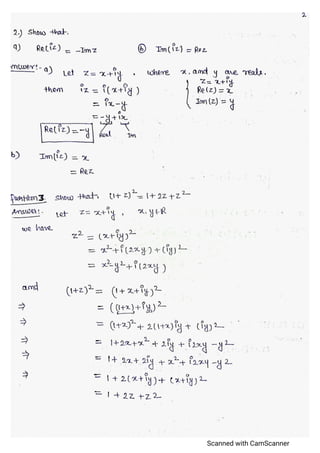 2
2.) Show that.
a) Re(iz) = -Imz b) Im(iz) = Rez
Answer:- a) Let z = x+iy , where x. and y are reals.
then iz = i(x+iy) z = x+iy
= ix-y Re(z) = x
= -y+ix Im(z) = y
Re(iz) = -y Real Im
b) Im(iz) = x
= Rez
Problem 3 Show that, (1+z)2 = 1+2z+z2
Answer:. Let z = x+iy , x, y∈R
we have.
z2 = (x+iy)2
= x2+i(2xy)+(iy)2
= x2-y2+i(2xy)
and (1+z)2 = (1+x+iy)2
⇒ = ((1+x)+iy)2
⇒ = (1+x)2+2(1+x)iy + (iy)2
⇒ = 1+2x+x2+2iy + i2xy -y2
⇒ = 1+2x+2iy + x2+i2xy -y2
⇒ = 1+2(x+iy)+(x+iy)2
= 1+2z+z2
Scanned with CamScanner